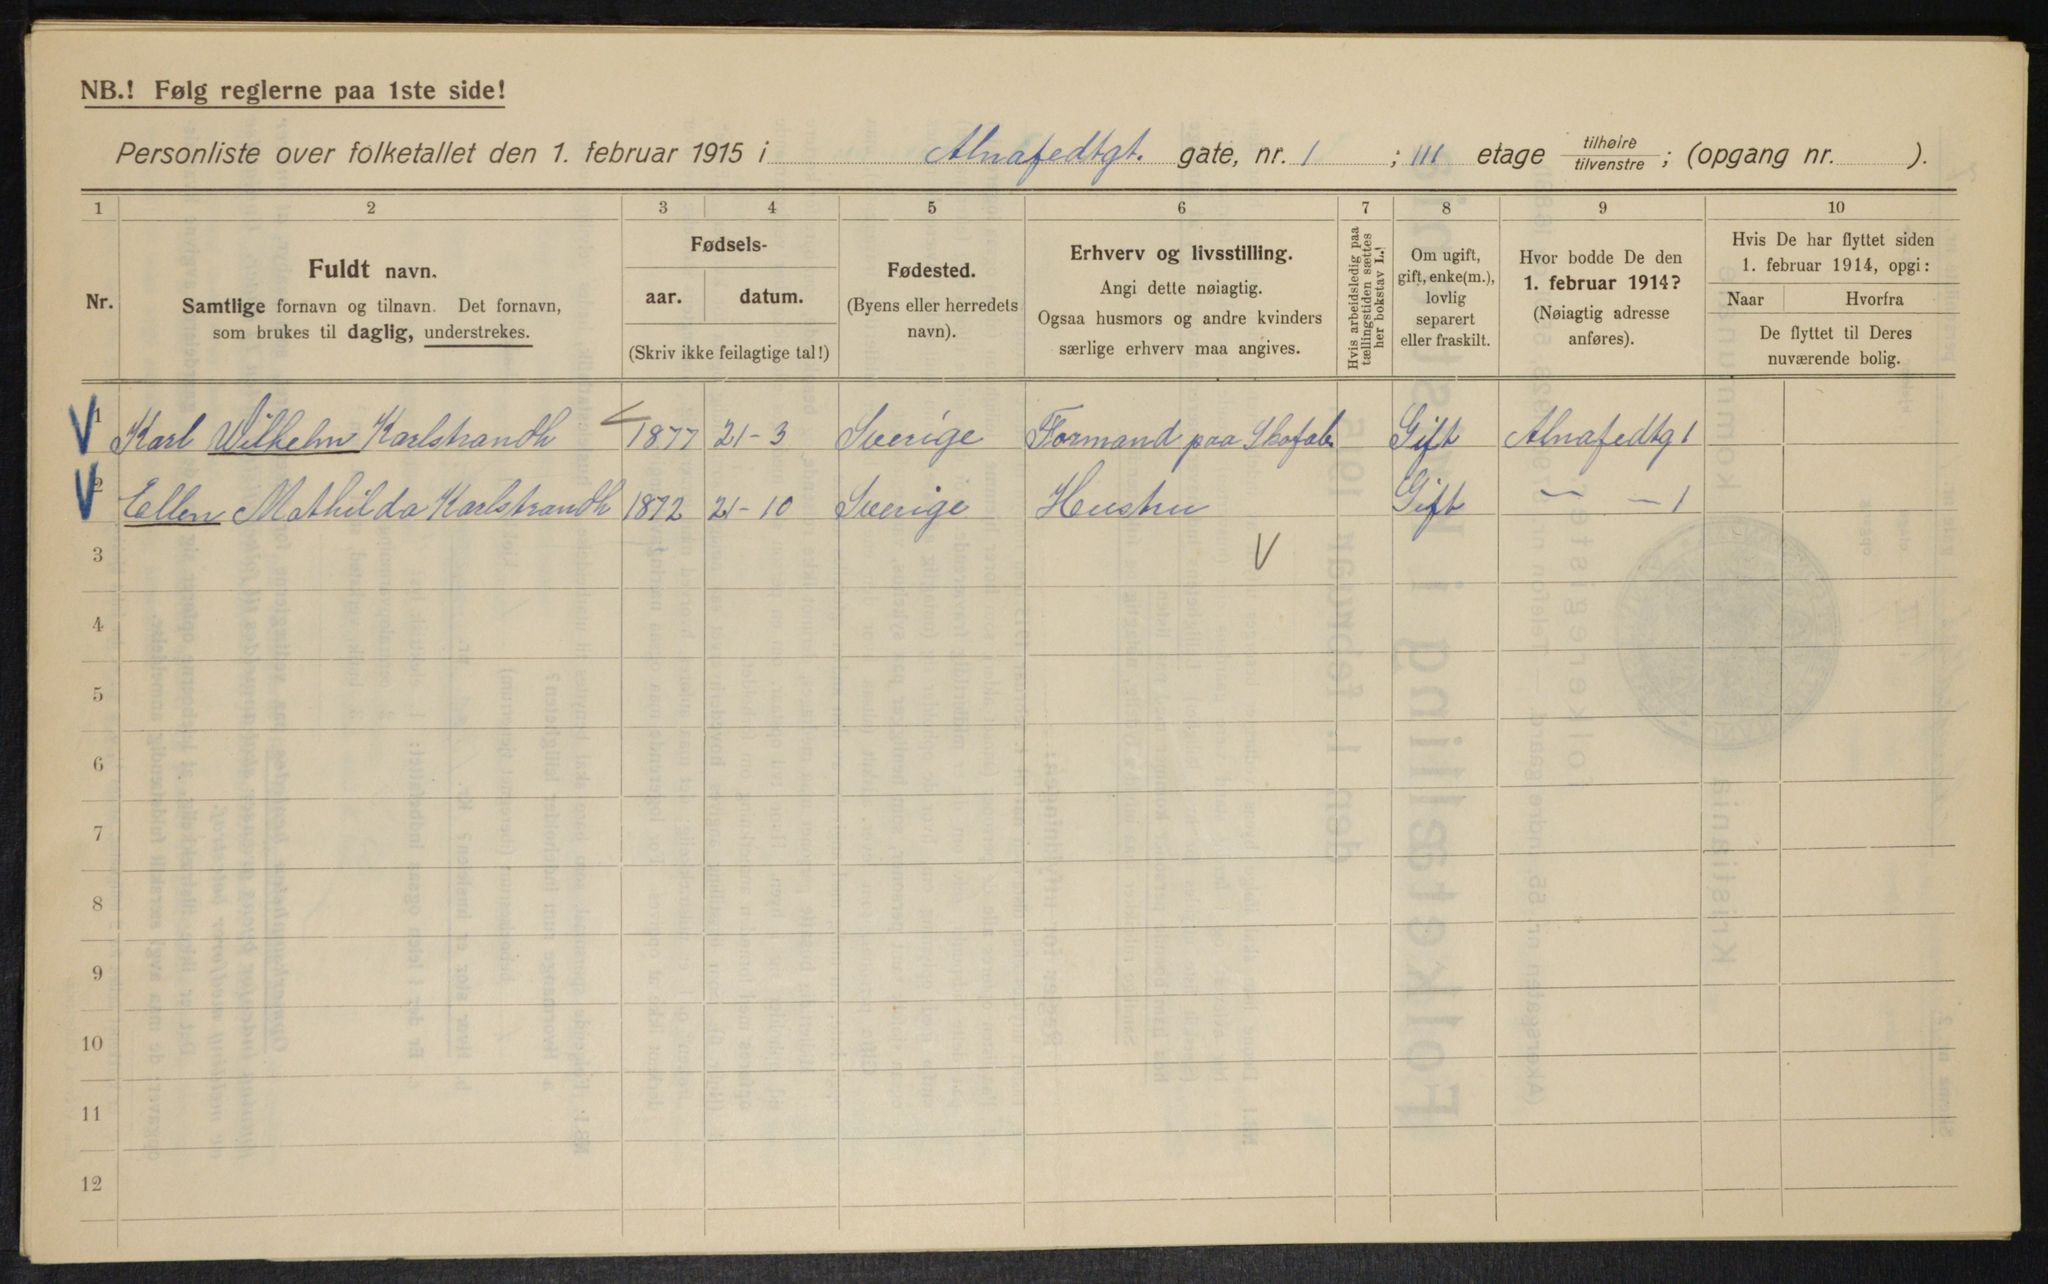 NB.! Følg reglerne paa 1ste side!
Personliste over folketallet den 1. februar 1915 i Alnafedtgt. gate, nr. 1 ; III etage tilhøire tilvenstre ; (opgang nr. ).
1 2 3 4 5 6 7 8 9 10
Nr.
Fuldt navn.
Samtlige fornavn og tilnavn. Det fornavn,
som brukes til daglig, understrekes.
Fødsels-
aar. datum.
(Skriv ikke feilagtige tal!)
Fødested.
(Byens eller herredets
navn).
Erhverv og livsstilling.
Angi dette nøiagtig.
Ogsaa husmors og andre kvinders
særlige erhverv maa angives.
Hvis arbeidsledig paa
tællingstiden sættes
her bokstav L.!
Om ugift,
gift, enke(m.),
lovlig
separert
eller fraskilt.
Hvor bodde De den
1. februar 1914?
(Nøiagtig adresse
anføres).
Hvis De har flyttet siden
1. februar 1914, opgi:
Naar Hvorfra
De flyttet til Deres
nuværende bolig.
V 1 Karl Wilhelm Karlstrandh 1877 21-3 Sverige Formand paa Skofab. Gift Alnafedtg 1
V 2 Ellen Mathilda Karlstrandh 1872 21-10 Sverige Hustru Gift — — 1
3 V
4
5
6
7
8
9
10
11
12